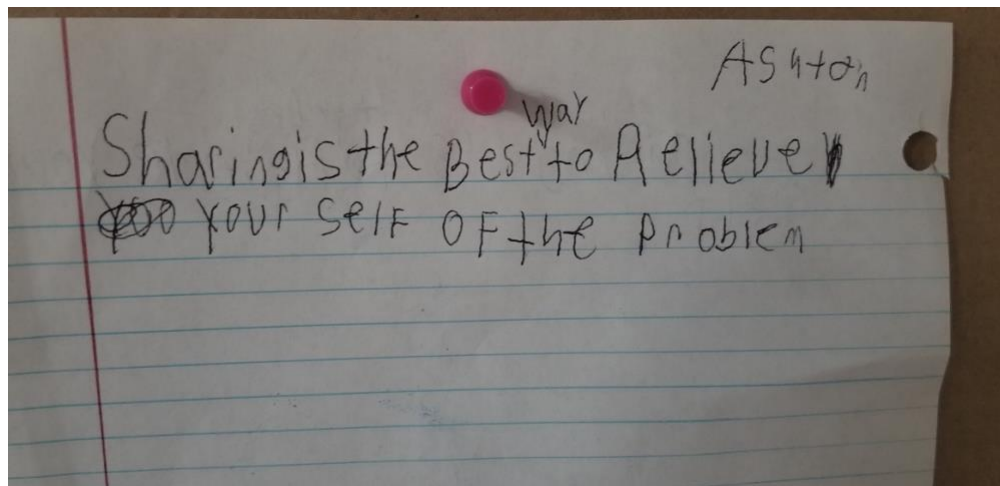 Ashton
Sharing is the Best way to Relieve
your self of the problem